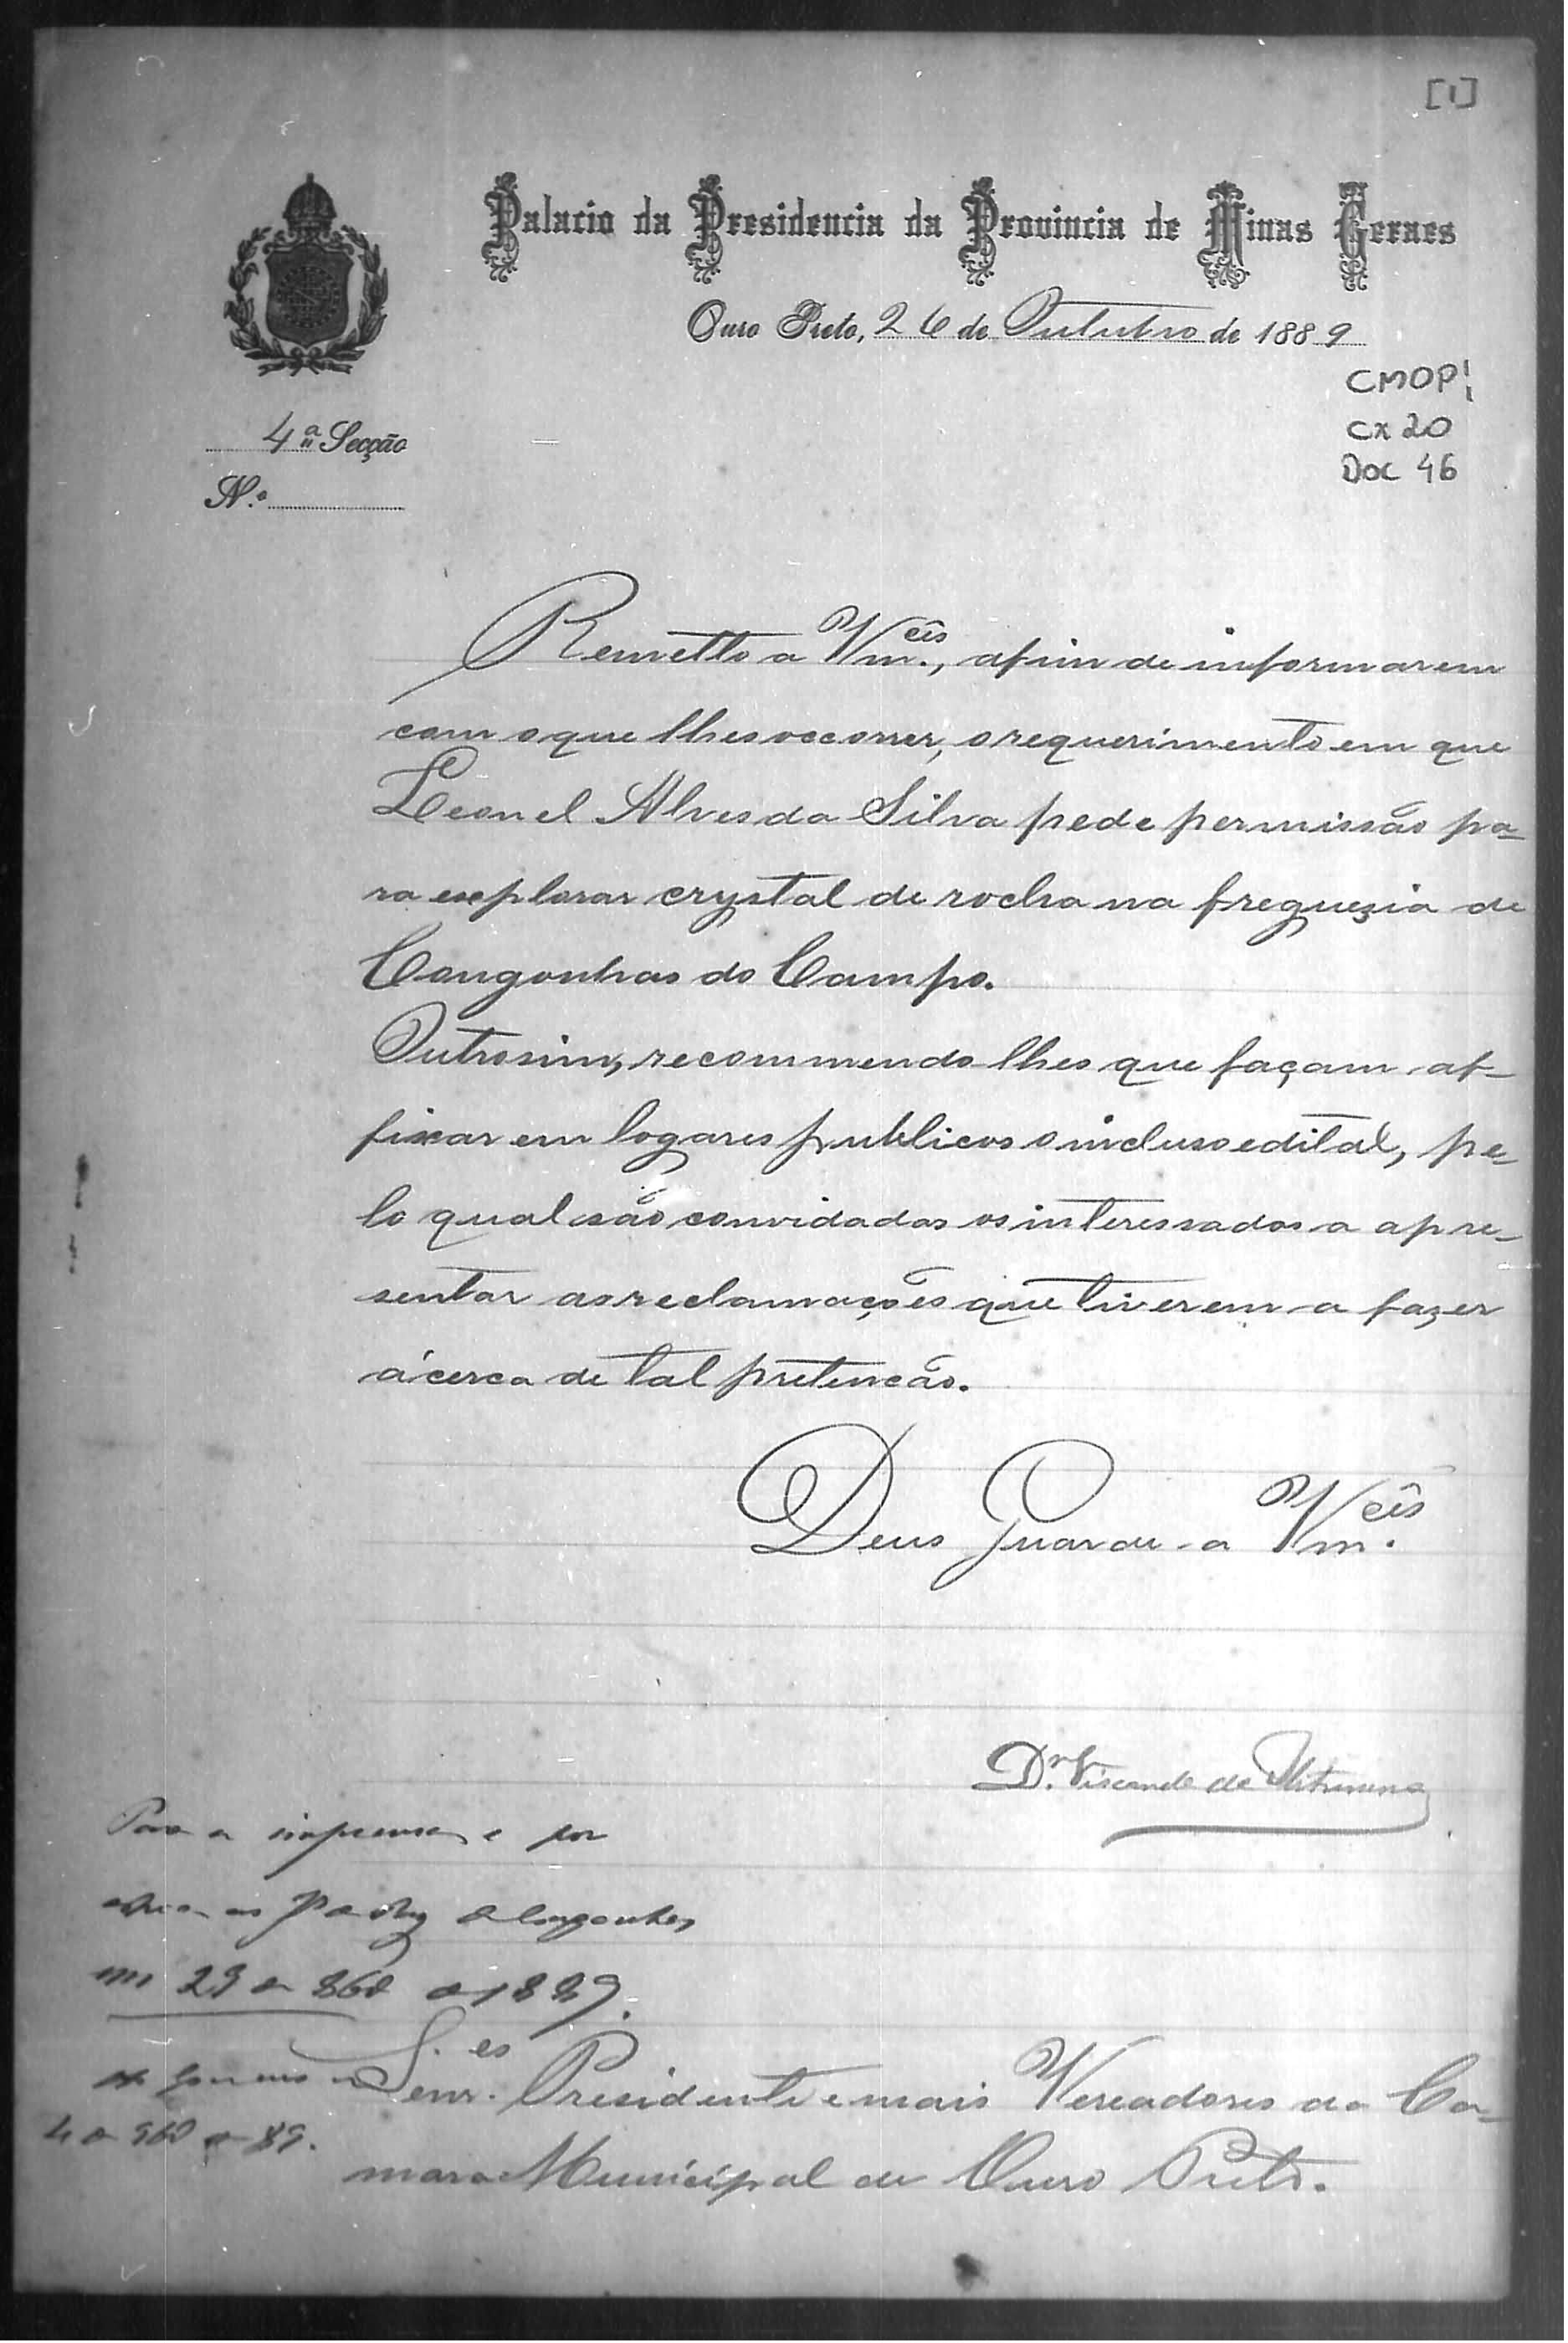 [1]
Palacio da Presidencia da Provincia de Minas Geraes
Ouro Preto, 26 de Outubro de 1889
CMOP!
CX 20
DOC 46
4ª Secção
N.º
Remetto a Vm.cês, afim de informarem
com o que lhes occorrer, o requerimento em que
Leonel Alves da Silva pede permissão pa-
ra explorar crystal de rocha na freguezia de
Congonhas do Campo.
Outrosim, recommendo-lhes que façam af-
fixar em logares publicos o incluso edital, pe-
lo qual são convidados os interessados a apre-
sentar as reclamações que tiverem a fazer
ácerca de tal pretenção.
Deus Guarde a Vm.cês
Dr. Visconde de
Para a imprensa e por
em 29 de de 1889.
Senr.es Presidente e mais Vereadores da Ca-
mara Municipal de Ouro Preto.